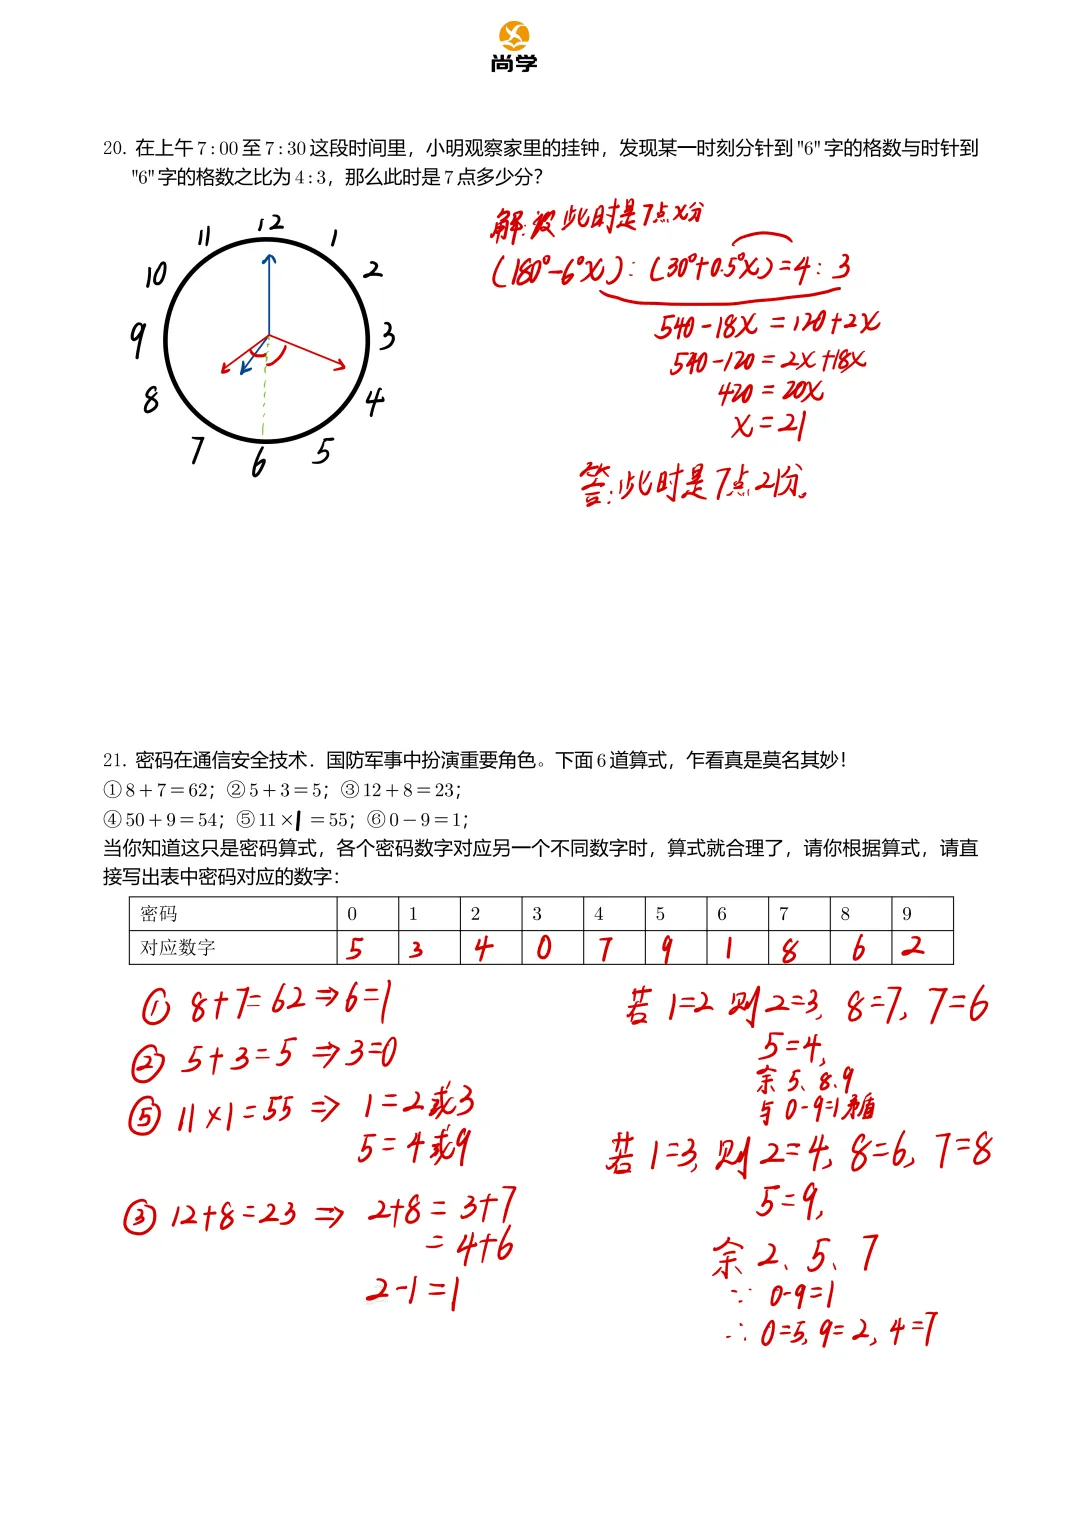 尚学
20. 在上午 7 : 00 至 7 : 30 这段时间里，小明观察家里的挂钟，发现某一时刻分针到 "6" 字的格数与时针到
"6" 字的格数之比为 4 : 3，那么此时是 7 点多少分？
12
11
1
10
2
9
3
8
4
7
5
6
解：设此时是7点x分
(180°-6°x) : (30°+0.5°x)=4 : 3
540-18x =120+2x
540-120=2x+18x
420=20x
x=21
答：此时是7点21分。
21. 密码在通信安全技术．国防军事中扮演重要角色。下面 6 道算式，乍看真是莫名其妙！
① 8 + 7 = 62；② 5 + 3 = 5；③ 12 + 8 = 23；
④ 50 + 9 = 54；⑤ 11 × 1 = 55；⑥ 0 − 9 = 1；
当你知道这只是密码算式，各个密码数字对应另一个不同数字时，算式就合理了，请你根据算式，请直
接写出表中密码对应的数字：
密码 0 1 2 3 4 5 6 7 8 9
对应数字 5 3 4 0 7 9 1 8 6 2
① 8+7=62⇒6=1
② 5+3=5 ⇒3=0
⑤ 11×1=55 ⇒ 1=2或3
5=4或9
③ 12+8=23 ⇒ 2+8=3+7
=4+6
2-1=1
若1=2 则2=3, 8=7, 7=6
5=4,
余5、8、9
与0-9=1矛盾
若1=3, 则2=4, 8=6, 7=8
5=9,
余2、5、7
∵ 0-9=1
∴ 0=5, 9=2, 4=7